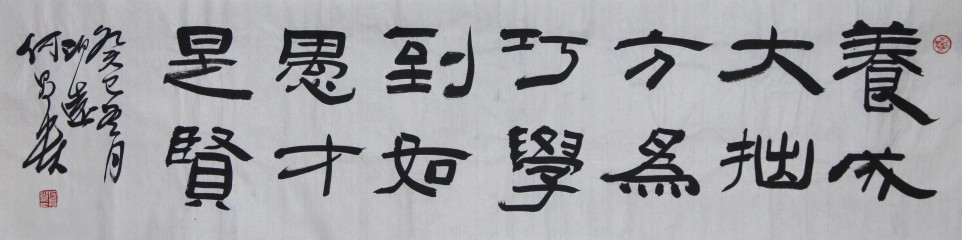 養成
大拙
方為
巧學
到如
愚才
是賢
癸巳冬月
何